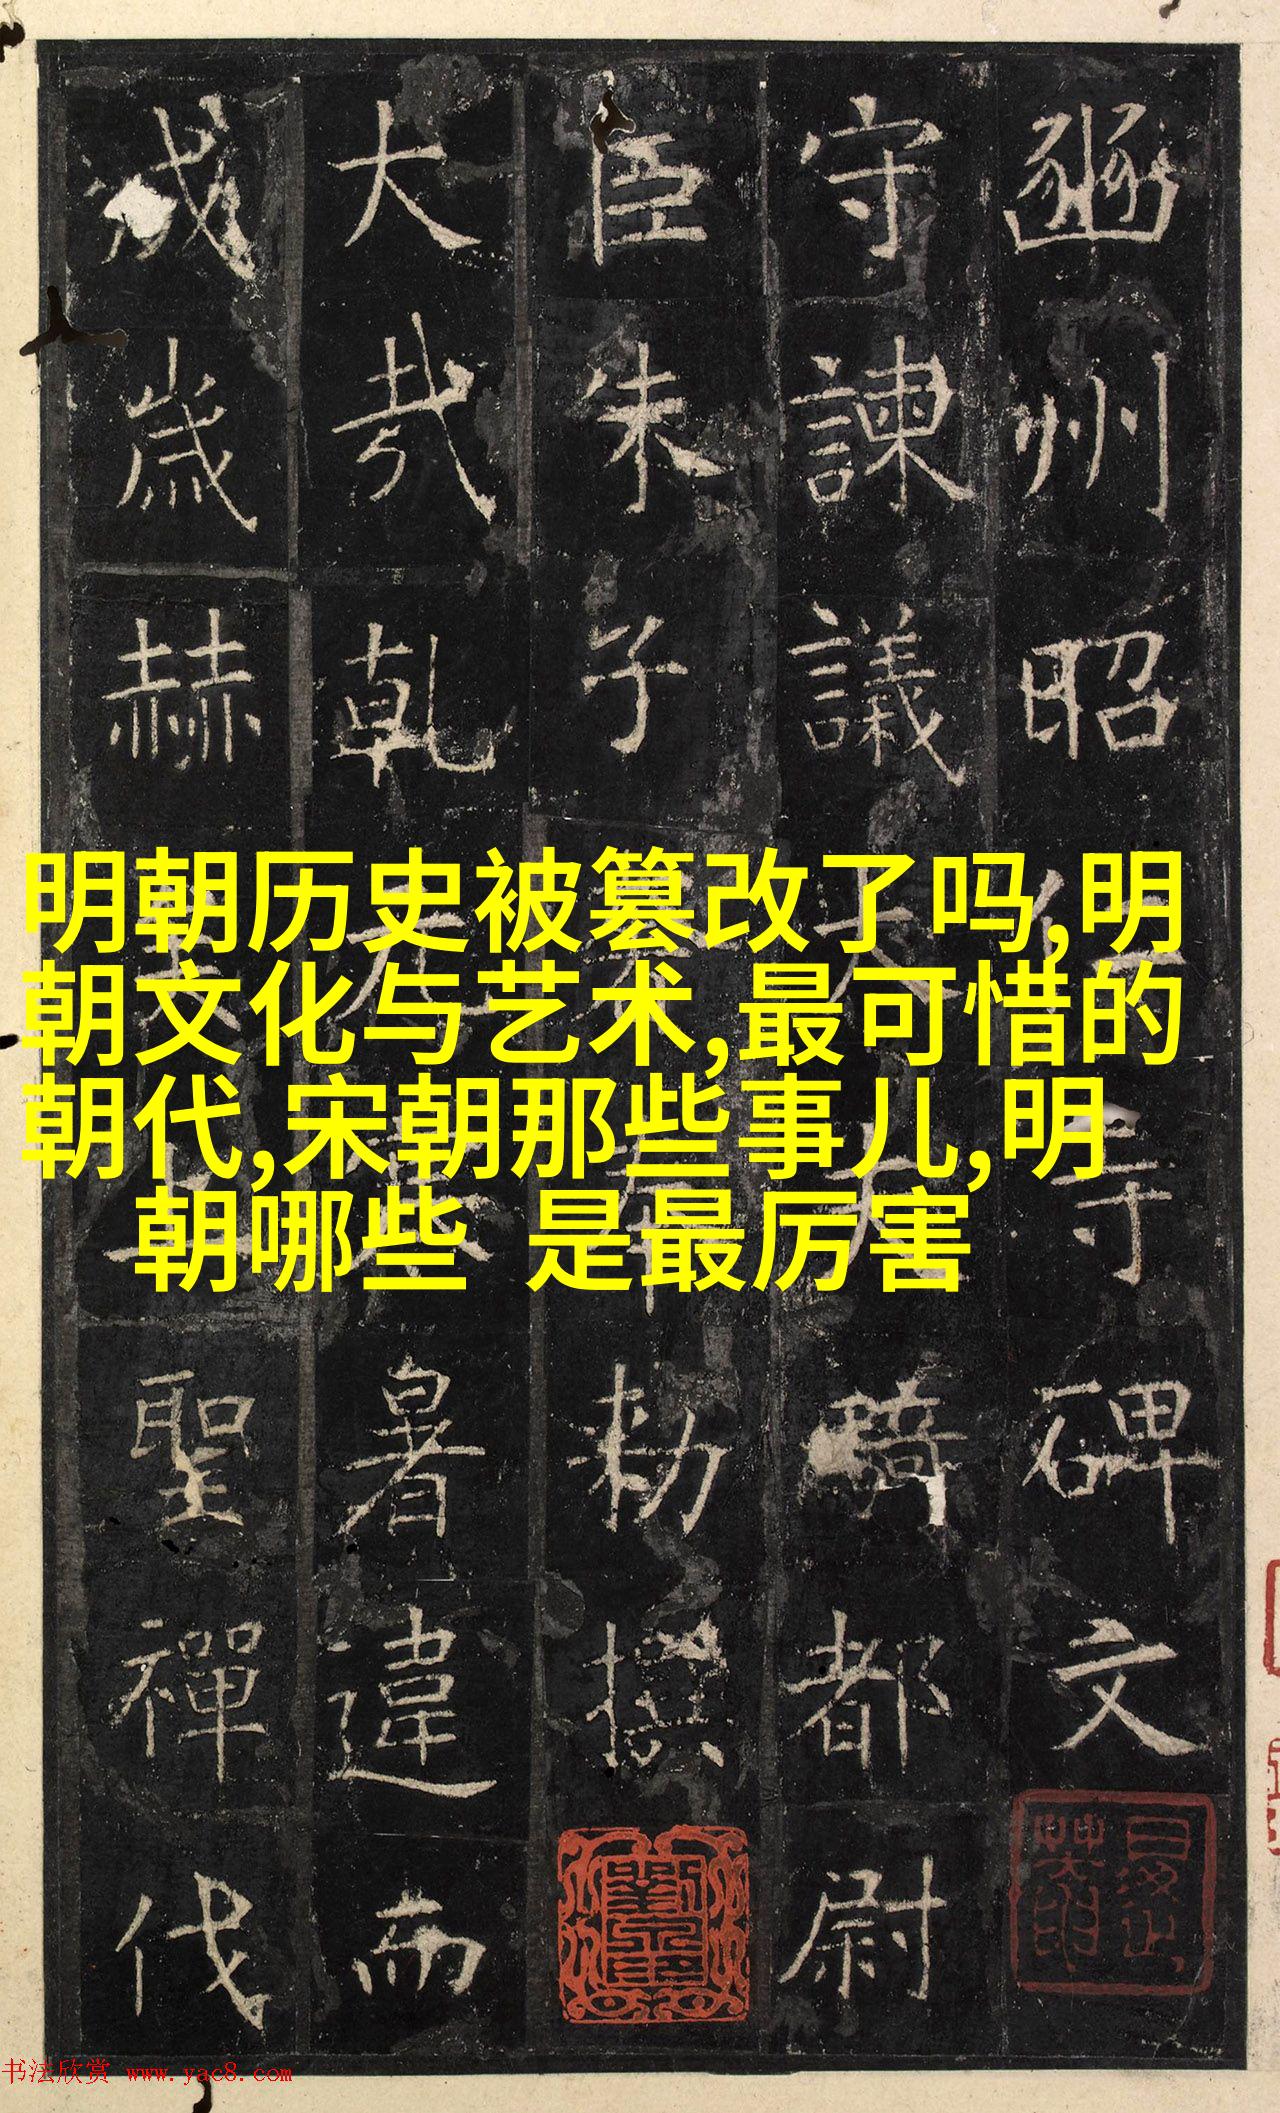 豳州昭寺碑文
守諫議大夫騎都尉
臣朱子奉勑撰
大哉乾元暑違而
成歲赫上聖禪代
明朝历史被篡改了吗,明
朝文化与艺术,最可惜的
朝代,宋朝那些事儿,明
朝哪些 是最厉害
书法欣赏 www.yac8.com